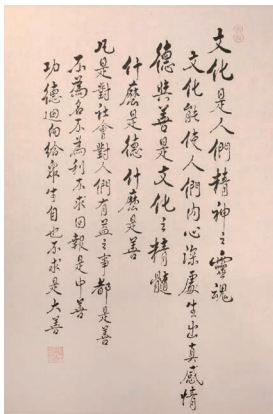 文化是人們精神之靈魂
文化能使人們內心深處生出真感情
德與善是文化之精髓
什麼是德什麼是善
凡是對社會對人們有益之事都是善
不為名不為利不求回報是中善
功德迴向給眾生自也不求是大善